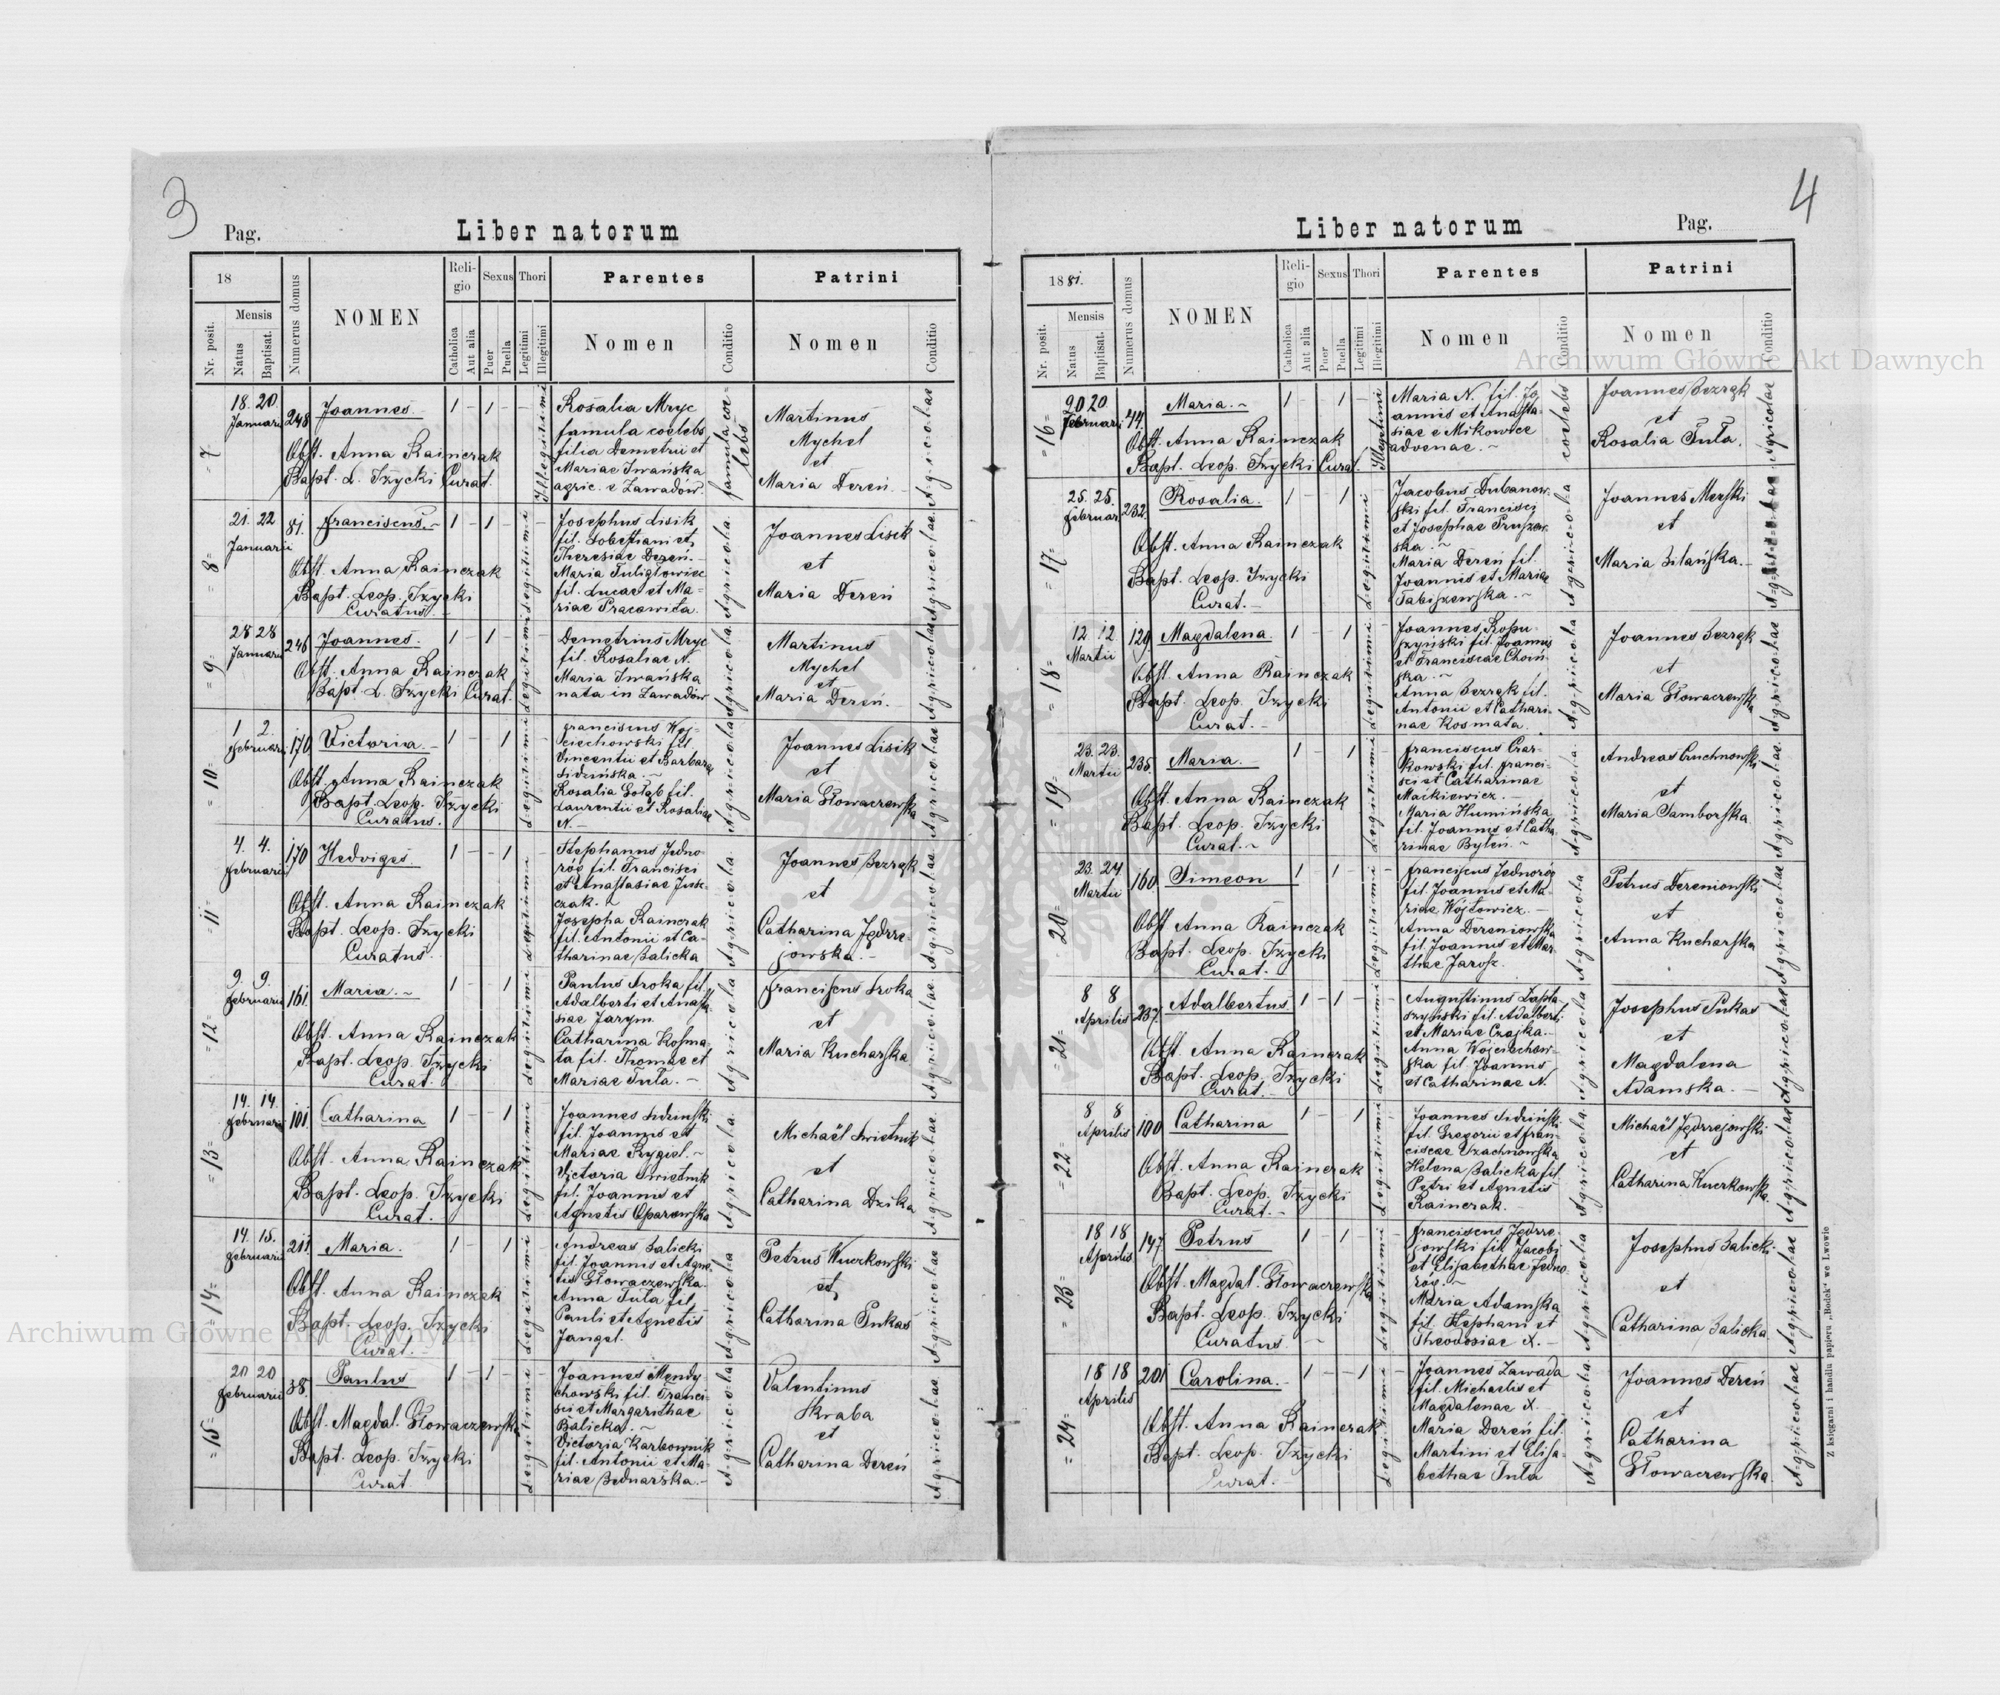 3
Pag.
Liber natorum
18
Nr. posit.
Mensis
Natus
Baptisat.
Numerus domus
NOMEN
Religio
Catholica
Aut alia
Sexus
Puer
Puella
Thori
Legitimi
Illegitimi
Parentes
Nomen
Conditio
Patrini
Nomen
Conditio
=7=
18. 20.
Januarii
248
Joannes.
1 - 1 -
Illegitimi
Obst. Anna Rainczak
Bapt. L. Izycki Curat.
Rosalia Mryc
famula coelebs
filia Demetrii et
Mariae Iwańska
agric. e Zawadów.
famula coelebs
Martinus
Mychel
et
Maria Dereń.
Agricolae
=8=
21. 22
Januarii
81.
Franciscus.
1 - 1 -
Legitimi
Obst. Anna Rainczak
Bapt. Leop. Izycki
Curatus.
Josephus Lisik
fil. Sobestiani et
Theresiae Dereń.
Maria Tuliglowicz
fil. Lucae et Ma-
riae Pracowita.
Agricola
Joannes Lisik
et
Maria Dereń
Agricolae
=9=
28 28
Januarii
246
Joannes.
1 - 1 -
Legitimi
Obst. Anna Rainczak
Bapt. L. Izycki Curat.
Demetrius Mryc
fil. Rosaliae N.
Maria Iwańska
nata in Zawadów
Agricola
Martinus
Mychel
et
Maria Dereń.
Agricolae
=10=
1 2.
Februarii
170
Victoria.
1 - 1
Legitimi
Obst. Anna Rainczak
Bapt. Leop. Izycki
Curatus.
Franciscus Woj-
ciechowski fil
Vincentii et Barbarae
Sidzińska.
Rosalia Gołąb fil.
Laurentii et Rosaliae
N.
Agricola
Joannes Lisik
et
Maria Głowaczewska
Agricolae
=11=
4. 4.
Februarii
170
Hedviges.
1 - 1
Legitimi
Obst. Anna Rainczak
Bapt. Leop. Izycki
Curatus
Stephanus Jedno-
róg fil. Francisci
et Anastasiae Jusz-
czak.
Josepha Rainczak
fil. Antonii et Ca-
tharinae Balicka
Agricola
Joannes Bezręk
et
Catharina Jędrze-
jowska.
Agricolae
=12=
9. 9.
Februarii
161.
Maria.
1 - 1
Legitimi
Obst. Anna Rainczak
Bapt. Leop. Izycki
Curat.
Paulus Sroka fil.
Adalberti et Anasta-
siae Jarym
Catharina Kosma-
ta fil. Thomae et
Mariae Tuta.
Agricola
Franciscus Sroka
et
Maria Kucharska
Agricolae
=13=
14. 14.
Februarii
101.
Catharina
1 - 1
Legitimi
Obst. Anna Rainczak
Bapt. Leop. Izycki
Curat.
Joannes Sidzinski
fil. Joannis et
Mariae Rygiel.
Victoria Swietnik
fil. Joannis et
Agnetis Oparowska
Agricola
Michaël Swietnik
et
Catharina Dzika
Agricolae
=14=
14. 15.
Februarii
211.
Maria.
1 - 1
Legitimi
Obst. Anna Rainczak
Bapt. Leop. Izycki
Curat.
Andreas Balicki
fil. Joannis et Agne-
tis Głowaczewska.
Anna Tuta fil.
Pauli et Agnetis
Jangel.
Agricola
Petrus Kuczkowski
et
Catharina Pukas
Agricolae
=15=
20 20
Februarii
38.
Paulus
1 - 1 -
Legitimi
Obst. Magdal. Głowaczewska
Bapt. Leop. Izycki
Curat.
Joannes Mendy-
chowski fil. Franci-
sci et Margarithae
Balicka.
Victoria Karbownik
fil. Antonii et Ma-
riae Bednarska.
Agricola
Valentinus
Skraba
et
Catharina Dereń
Agricolae
4
Liber natorum
Pag.
1881.
Nr. posit.
Mensis
Natus
Baptisat.
Numerus domus
NOMEN
Religio
Catholica
Aut alia
Sexus
Puer
Puella
Thori
Legitimi
Illegitimi
Parentes
Nomen
Conditio
Patrini
Nomen
Conditio
=16=
20 20
Februarii
44.
Maria.
1 - 1
Illegitimi
Obst. Anna Rainczak
Bapt. Leop. Izycki Curat.
Maria N. fil. Jo-
annis et Anasta-
siae e Mikowice
advenae.
coelebs
Joannes Bezręk
et
Rosalia Tuta.
Agricolae
=17=
25. 25.
Februar.
232.
Rosalia.
1 - 1
Legitimi
Obst. Anna Rainczak
Bapt. Leop. Izycki
Curat.
Jacobus Dubanow-
ski fil. Francisci
et Josephae Pruszow-
ska.
Maria Dereń fil.
Joannis et Mariae
Tabiszewska.
Agricola
Joannes Merski
et
Maria Bilańska.
Agricolae
=18=
12. 12.
Martii
129.
Magdalena.
1 - 1
Legitimi
Obst. Anna Rainczak
Bapt. Leop. Izycki
Curat.
Joannes Kopu-
szyński fil. Joannis
et Franciscae Choiń-
ska.
Anna Bezręk fil.
Antonii et Cathari-
nae Kosmata.
Agricola
Joannes Bezręk
et
Maria Głowaczewska
Agricolae
=19=
23. 23.
Martii
235.
Maria.
1 - 1
Legitimi
Obst. Anna Rainczak
Bapt. Leop. Izycki
Curat.
Franciscus Czar-
kowski fil. Franci-
sci et Catharinae
Maćkiewicz.
Maria Humińska
fil. Joannis et Catha-
rinae Bylen.
Agricola
Andreas Cuchnowski
et
Maria Samborska
Agricolae
=20=
23. 24
Martii
160.
Simeon
1 - 1 -
Legitimi
Obst Anna Rainczak
Bapt. Leop. Izycki
Curat.
Franciscus Jednoróg
fil. Joannis et Ma-
riae Wojtowicz.
Anna Dereniowska
fil. Joannis et Mar-
thae Jarosz.
Agricola
Petrus Dereniowski
et
Anna Kucharska
Agricolae
=21=
8 8
Aprilis
237.
Adalbertus
1 - 1 -
Legitimi
Obst. Anna Rainczak
Bapt. Leop. Izycki
Curat.
Augustinus Łapta-
szyński fil. Adalberti
et Mariae Czajka.
Anna Wojciechow-
ska fil Joannis
et Catharinae N.
Agricola
Josephus Pukas
et
Magdalena
Adamska.
Agricolae
=22=
8 8
Aprilis
100
Catharina
1 - 1
Legitimi
Obst. Anna Rainczak
Bapt. Leop. Izycki
Curat.
Joannes Sidziński
fil. Gregorii et Fran-
ciscae Czachnowska
Helena Balicka fil
Petri et Agnetis
Rainczak.
Agricola
Michaël Jędrzejowski
et
Catharina Kuczkowska.
Agricolae
=23=
18 18
Aprilis
147
Petrus
1 - 1 -
Legitimi
Obst. Magdal. Głowaczewska
Bapt. Leop. Izycki
Curatus
Franciscus Jędrze-
jowski fil Jacobi
et Elisabethae Jedno-
róg.
Maria Adamska
fil. Stephani et
Theodosiae X.
Agricola
Josephus Balicki
et
Catharina Balicka
Agricolae
=24=
18 18
Aprilis
201
Carolina.
1 - 1
Legitimi
Obst. Anna Rainczak
Bapt. Leop. Izycki
Curat.
Joannes Zawada
fil. Michaelis et
Magdalenae X.
Maria Dereń fil.
Martini et Elisa-
bethae Tuta
Agricola
Joannes Dereń
et
Catharina
Głowaczewska
Agricolae
Z księgarni i handlu papieru „Bodek" we Lwowie
Archiwum Główne Akt Dawnych
Archiwum Główne Akt Dawnych